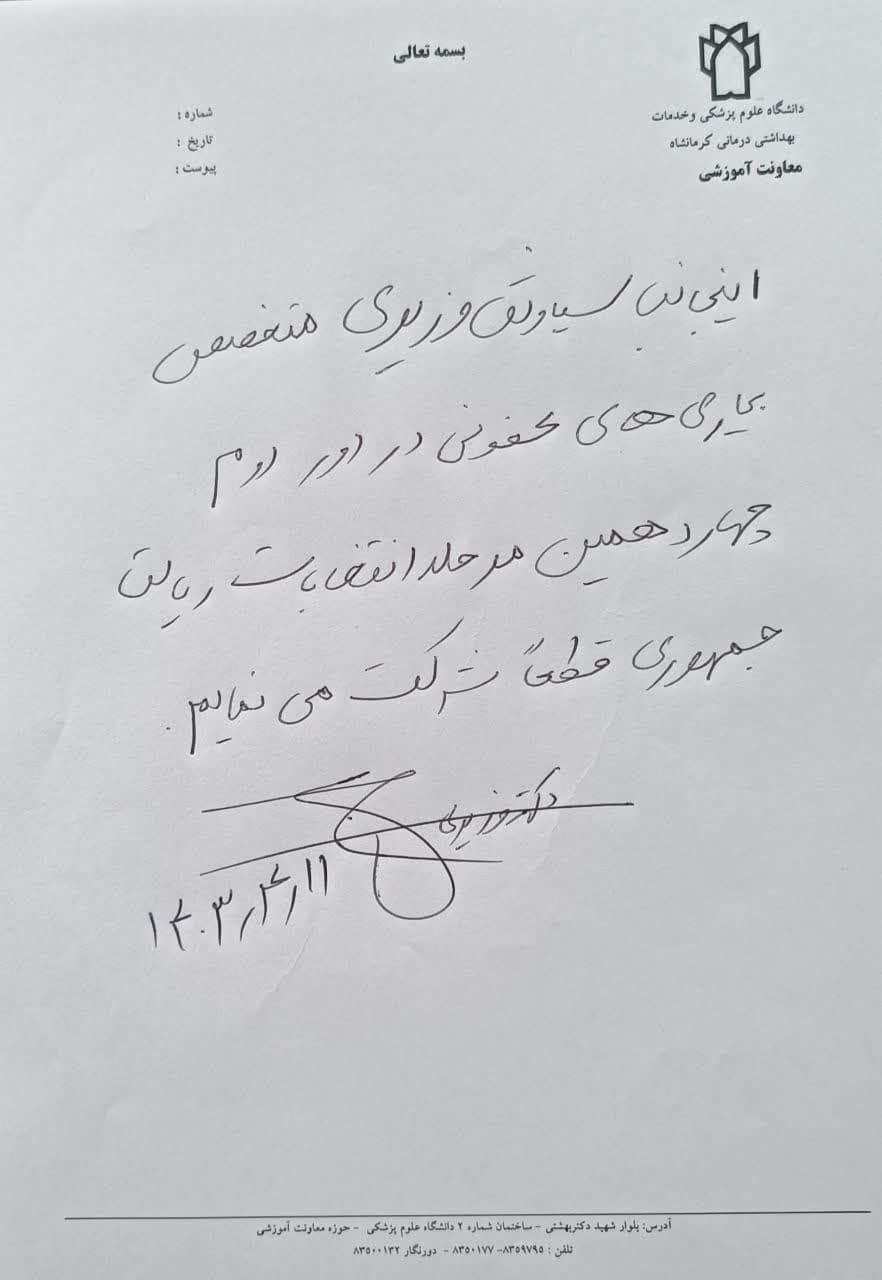 بسمه تعالی
دانشگاه علوم پزشکی وخدمات
بهداشتی درمانی کرمانشاه
معاونت آموزشی
شماره :
تاریخ :
پیوست :
اینجانب سیاوش وزیری متخصص
بیماری های عفونی در دور دوم
چهاردهمین مرحله انتخابات ریاست
جمهوری قطعاً شرکت می نمایم.
دکتر وزیری
۱۴۰۳٫۴٫۱۱
آدرس: بلوار شهید دکتربهشتی - ساختمان شماره ۲ دانشگاه علوم پزشکی - حوزه معاونت آموزشی
تلفن : ۸۳۵۹۷۹۵- ۸۳۵۰۱۷۷ - دورنگار ۸۳۵۰۰۱۳۲